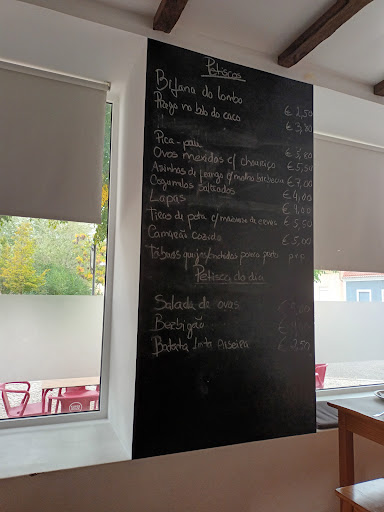 Petiscos
Bifana do lombo € 2,50
Prego no bolo do caco € 3,80
Pica-pau € 5,80
Ovos mexidos c/ chouriço € 5,50
Asinhas de frango c/ molho barbecue € 7,00
Cogumelos salteados € 4,00
Lapas € 9,00
Tiras de pota c/ maionese de € 5,50
Camarão cozido € 5,00
Tábuas queijos/enchidos
Petisco do dia
Salada de ovas €
Berbigão €
Batata frita Caseira € 2,50